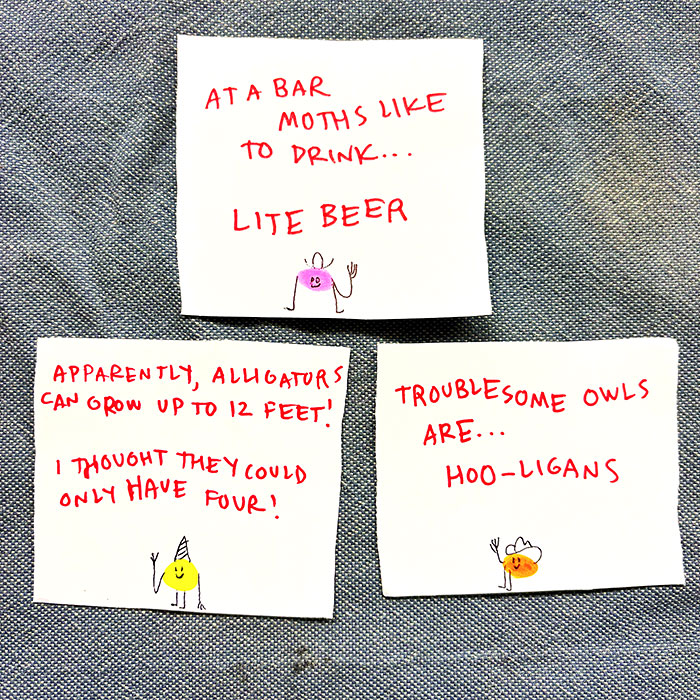 AT A BAR
MOTHS LIKE
TO DRINK...
LITE BEER
APPARENTLY, ALLIGATORS
CAN GROW UP TO 12 FEET!
I THOUGHT THEY COULD
ONLY HAVE FOUR!
TROUBLESOME OWLS
ARE...
HOO-LIGANS